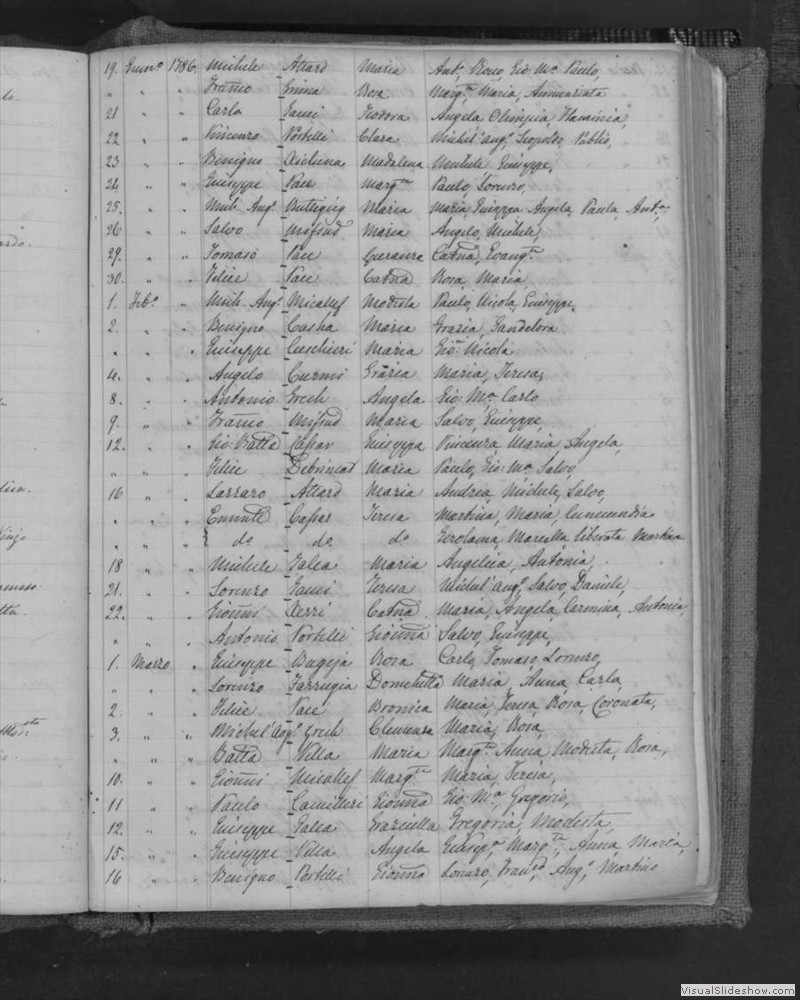 19. Genn.o 1786. Michele Attard Maria Ant.o Gio: M.a Paulo,
" " " Fran.co Rosa Marg.ta Maria, Annunziata
21 " " Carlo Zami Teodora Angela Olimpia,
22 " " Vincenzo Portelli Clara Michel'ang.o Leopoldo, Publio,
23 " " Benigno Xicluna Madalena Michele Giuseppe,
24 " " Giuseppe Pace Marg.ta Paulo Lorenzo,
25. " " Mich. Ang.o Buttigieg Maria Maria Giuseppa Angela, Paula, Ant.a
26 " " Salvo Mifsud Maria Angelo, Michele,
29. " " Tomaso Pace Catna, Evang.ta
30. " " Felice Pace Catna Rosa, Maria,
1. Feb.o " Mich. Ang.o Micallef Modesta Paulo, Nicola, Giuseppe,
2. " " Benigno Casha Maria Grazia, Gandelora
" " " Giuseppe Cuschieri Maria Gio: Nicola
4. " " Angelo Curmi Grazia Maria, Teresa,
8. " " Antonio Grech Angela Gio: M.a Carlo
9. " " Fran.co Mifsud Maria Salvo, Giuseppe,
12. " " Gio: Batta Caspar Giuseppa Vincenza, Maria, Angela,
" " " Felice Debrincat Maria Paulo, Gio: M.a Salvo,
16 " " Lazzaro Attard Maria Andrea, Michele, Salvo,
" " " Caspar Teresa Martina, Maria,
" " " do do do Gerolama, Marcella Liberata Martina
18 " " Michele Galea Maria Angelica, Antonia,
21. " " Lorenzo Zami Teresa Michel'ang.o Salvo, Daniele,
22. " " Gionni Xerri Catna Maria, Angela, Carmina, Antonia,
" " " Antonio Portelli Gionna Salvo, Giuseppe,
1. Marzo " Giuseppe Bugeja Rosa Carlo, Tomaso Lorenzo,
" " " Lorenzo Farrugia Domenica Maria, Anna, Carla,
2. " " Felice Pace Bronica Maria, Teresa, Rosa, Coronata,
3. " " Michel'ang.o Grech Clemenza Maria, Rosa,
" " " Batta Villa Maria Marg.ta Anna, Modesta, Rosa,
10. " " Gionni Micallef Marg.ta Maria, Teresa,
11 " " Paulo Camilleri Gionna Gio: M.a Gregorio,
12. " " Giuseppe Galea Graziulla Gregoria, Modesta,
15. " " Giuseppe Villa Angela Giusep.a Marg.ta, Anna Maria,
16 " " Benigno Portelli Gionna Lonzo, Fran.co, Ang.o Martino
VisualSlideshow.com